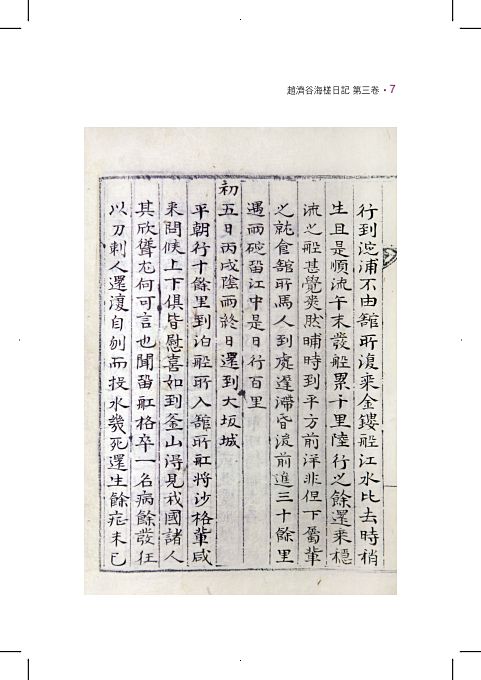 趙濟谷海槎日記 第三卷 • 7
行到淀浦不由舘所復乘金鏤船江水比去時稍
生且是順流午末發船累十里陸行之餘還乘穩
流之船甚覺爽然晡時到平方前洋非但下屬輩
之就食舘所馬人到處遲滯昏後前進三十餘里
遇雨碇留江中是日行百里
初五日丙戌陰雨終日還到大坂城
平朝行十餘里到泊船所入舘所舡將沙格輩咸
來問候上下俱皆慰喜如到釜山得見我國諸人
其欣聳尤何可言也聞留舡格卒一名病餘發狂
以刀刺人還復自刎而投水幾死還生餘症未已